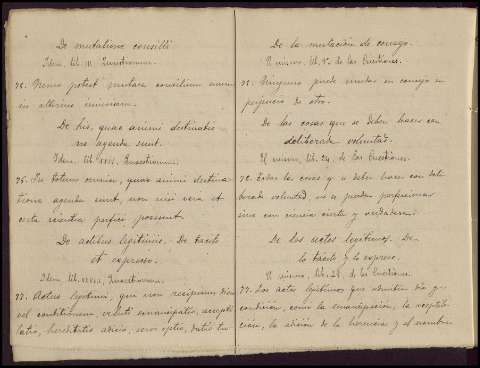 De mutatione consilii.
Idem. lib. III. Quaestionum.
75. Nemo potest mutare consilium suum
in alterius injuriam.
De his, quae animi destinatio-
ne agenda sunt.
Idem. lib. XXIV. Quaestionum.
76. In totum omnia, quae animi destina-
tione agenda sunt, non nisi vera et
certa scientia perfici possunt.
De actibus legitimis. De tacito
et expreso.
Idem. lib. XXVIII. Quaestionum.
77. Actus legitimi, qui non recipiunt diem
vel conditionem, veluti emancipatio, accepti-
latio, hereditatis aditio, servi optio, datio tu-
De la mutación de consejo.
El mismo, lib. 3º de las Cuestiones.
75. Ninguno puede mudar su consejo en
perjuicio de otro.
De las cosas que se deben hacer con
deliberada voluntad.
El mismo, lib. 24, de las Cuestiones.
76. Todas las cosas q. se deben hacer con deli-
berada voluntad, no se pueden perfeccionar
sino con ciencia cierta y verdadera.
De los actos legítimos. De
lo tácito y lo expreso.
El mismo, lib. 28 de las Cuestiones.
77. Los actos legítimos que admiten día y
condición, como la emancipación, la aceptila-
ción, la adición de la herencia, y el nombra-